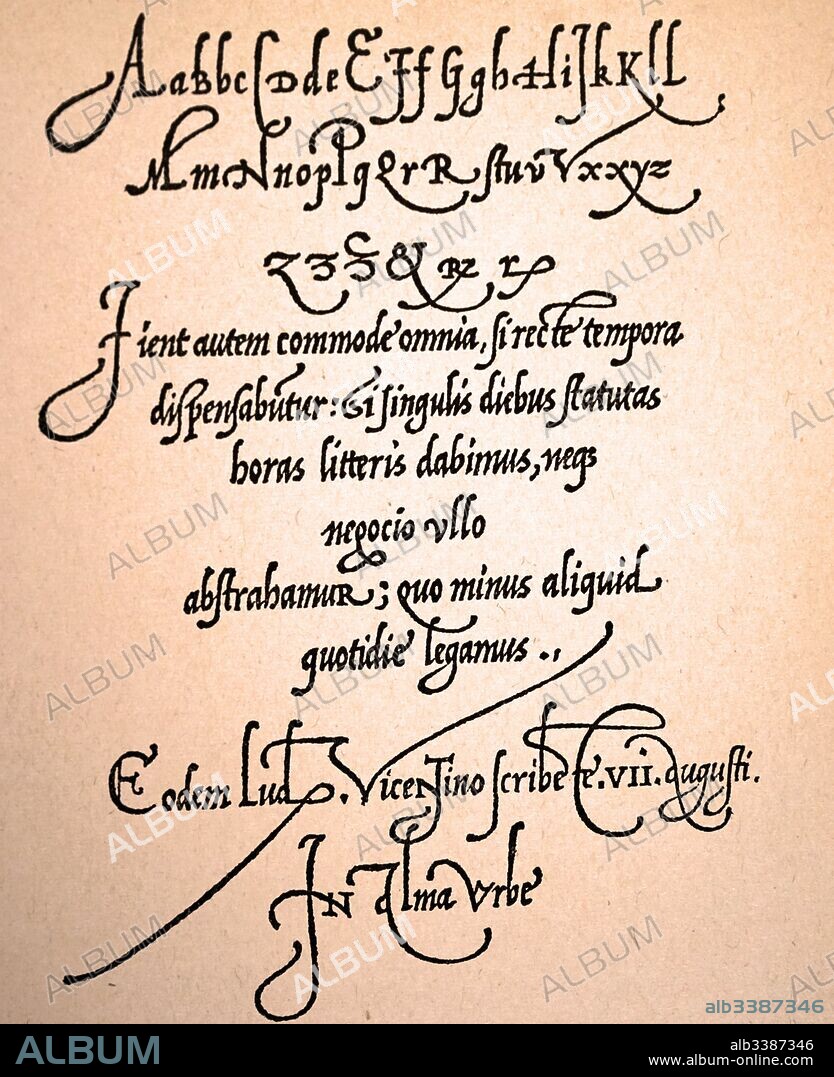 AaBbcCDdeEFfGgbHiJkKlL
MmNnopPqQrRſtuvVxxyz
& Rz
Fient autem commode omnia, ſi recte tempora
diſpenſabūtur: Et ſi ſingulis diebus ſtatutas
horas litteris dabimus, neqꝫ
negocio vllo
abſtrahamuR; quo minus aliquid
quotidie legamus .,
Eodem Lud. ViceNtino ſcribēte. VII. Auguſti.
IN Alma Vrbe
ALBUM
alb3387346
ALBUM
alb3387346
www.album-online.com